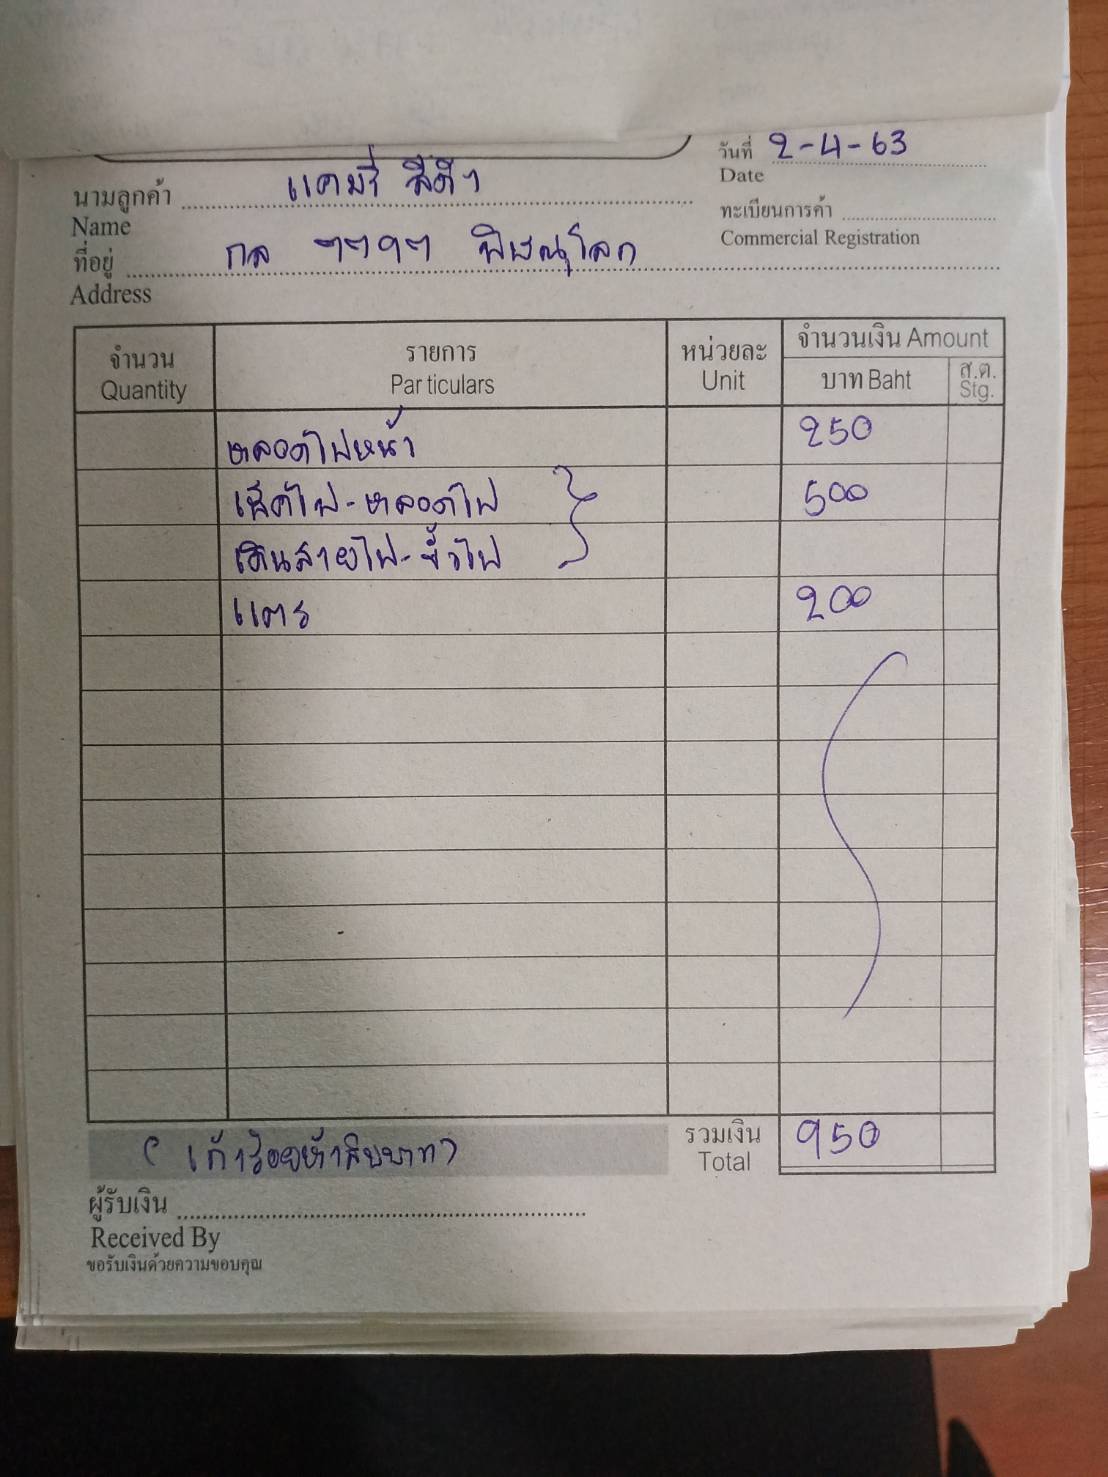 วันที่ 2-4-63
Date
นามลูกค้า แคมรี่ สีดำ
Name
ทะเบียนการค้า
Commercial Registration
ที่อยู่ กล ๆๆ9ๆ พิษณุโลก
Address
จำนวน รายการ หน่วยละ จำนวนเงิน Amount
Quantity Particulars Unit บาท Baht ส.ต. Stg.
หลอดไฟหน้า 250
เช็คไฟ-หลอดไฟ 500
เดินสายไฟ-ขั้วไฟ
แตร 200
(เก้าร้อยห้าสิบบาท) รวมเงิน 950
Total
ผู้รับเงิน
Received By
ขอรับเงินด้วยความขอบคุณ